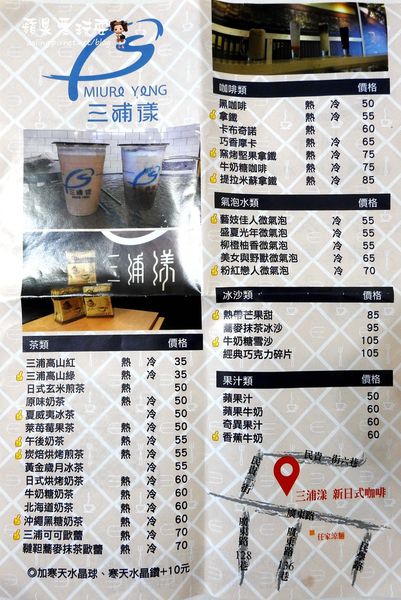 蘋果愛趴趴
MIURA YANG
三浦漾
三浦漾
三浦漾
三浦漾
茶類 價格
三浦高山紅 熱 冷 35
三浦高山綠 熱 冷 35
日式玄米煎茶 熱 50
原味奶茶 熱 冷 50
夏威夷冰茶 冷 50
萊莓莓果茶 熱 冷 50
午後奶茶 熱 冷 55
炭焙烘烤煎茶 熱 冷 55
黃金歲月冰茶 冷 55
日式烘烤奶茶 熱 冷 60
牛奶糖奶茶 熱 冷 60
北海道奶茶 熱 冷 60
沖繩黑糖奶茶 熱 冷 60
三浦可可歐蕾 熱 冷 70
韃靼蕎麥抹茶歐蕾 熱 冷 70
◎加寒天水晶球、寒天水晶鑽+10元
咖啡類 價格
黑咖啡 熱 冷 50
拿鐵 熱 冷 55
卡布奇諾 熱 60
巧香摩卡 熱 冷 65
窯烤堅果拿鐵 熱 冷 75
牛奶糖咖啡 熱 冷 75
提拉米蘇拿鐵 熱 冷 85
氣泡水類 價格
藝妓佳人微氣泡 冷 55
盛夏光年微氣泡 冷 55
柳橙柚香微氣泡 冷 55
美女與野獸微氣泡 冷 65
粉紅戀人微氣泡 冷 70
冰沙類 價格
熱帶芒果甜 85
蕎麥抹茶冰沙 95
牛奶糖雪沙 105
經典巧克力碎片 105
果汁類 價格
蘋果汁 50
蘋果牛奶 60
奇異果汁 60
香蕉牛奶 60
民貴一街六巷
三浦漾 新日式咖啡
廣東路
任家涼麵
廣東路128巷
廣東路136巷